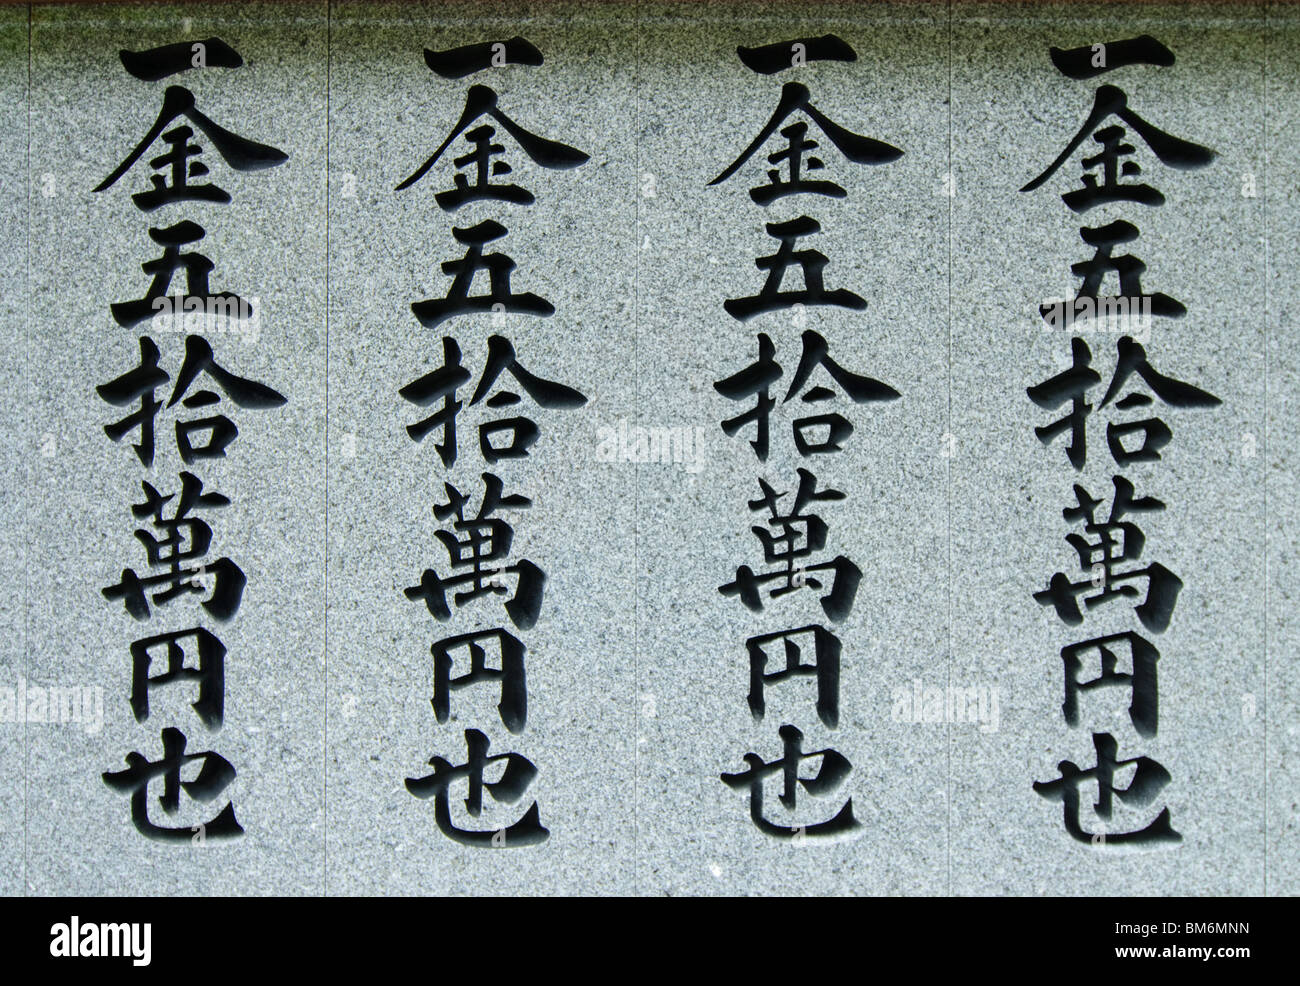 一金五拾萬円也
一金五拾萬円也
一金五拾萬円也
一金五拾萬円也
alamy
Image ID: BM6MNN
www.alamy.com